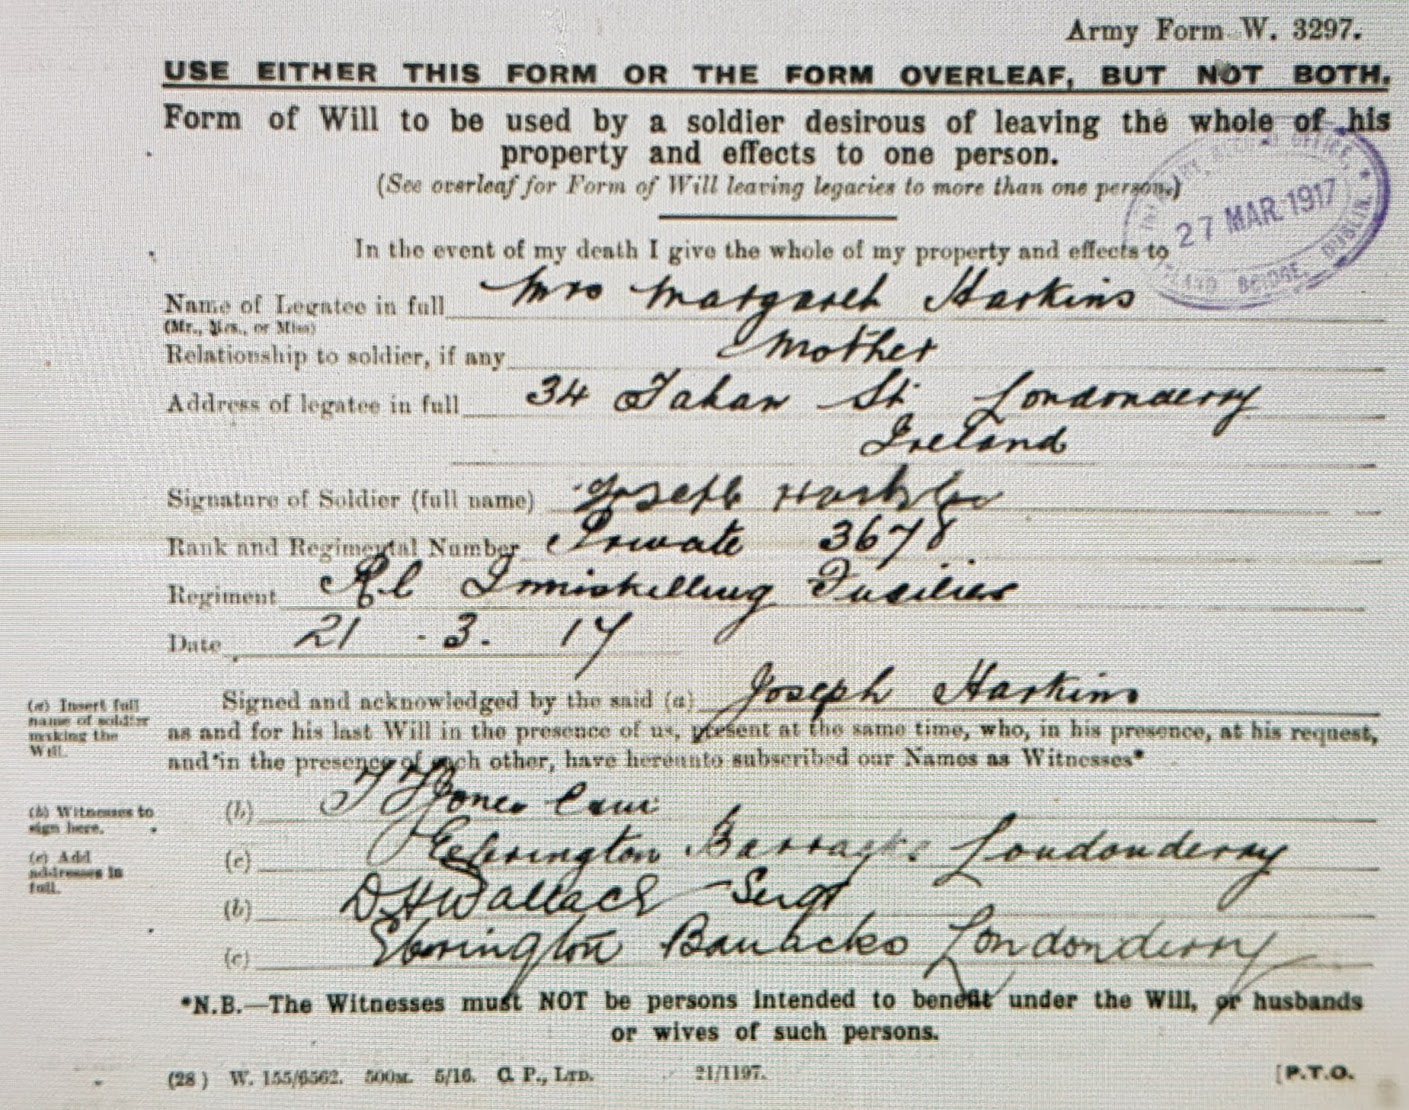 Army Form W. 3297.
USE EITHER THIS FORM OR THE FORM OVERLEAF, BUT NOT BOTH.
Form of Will to be used by a soldier desirous of leaving the whole of his
property and effects to one person.
(See overleaf for Form of Will leaving legacies to more than one person.)
27 MAR. 1917
DUBLIN.
In the event of my death I give the whole of my property and effects to
Name of Legatee in full Mrs Margaret Harkins
(Mr., Mrs., or Miss)
Relationship to soldier, if any Mother
Address of legatee in full 34 Fahan St Londonderry
Ireland
Signature of Soldier (full name) Joseph Harkins
Rank and Regimental Number Private 3678
Regiment Rl Inniskilling Fusilier
Date 21 . 3. 17
(a) Insert full
name of soldier
making the
Will.
Signed and acknowledged by the said (a) Joseph Harkins
as and for his last Will in the presence of us, present at the same time, who, in his presence, at his request,
and in the presence of each other, have hereunto subscribed our Names as Witnesses*
(b) Witnesses to
sign here.
(b) Jones
(c) Add
addresses in
full.
(c) Ebrington Barracks Londonderry
(b) D H Wallace Sergt
(c) Ebrington Barracks Londonderry
*N.B.—The Witnesses must NOT be persons intended to benefit under the Will, or husbands
or wives of such persons.
(28) W. 155/6562. 500M. 5/16. C. P., LTD. 21/1197. [P.T.O.